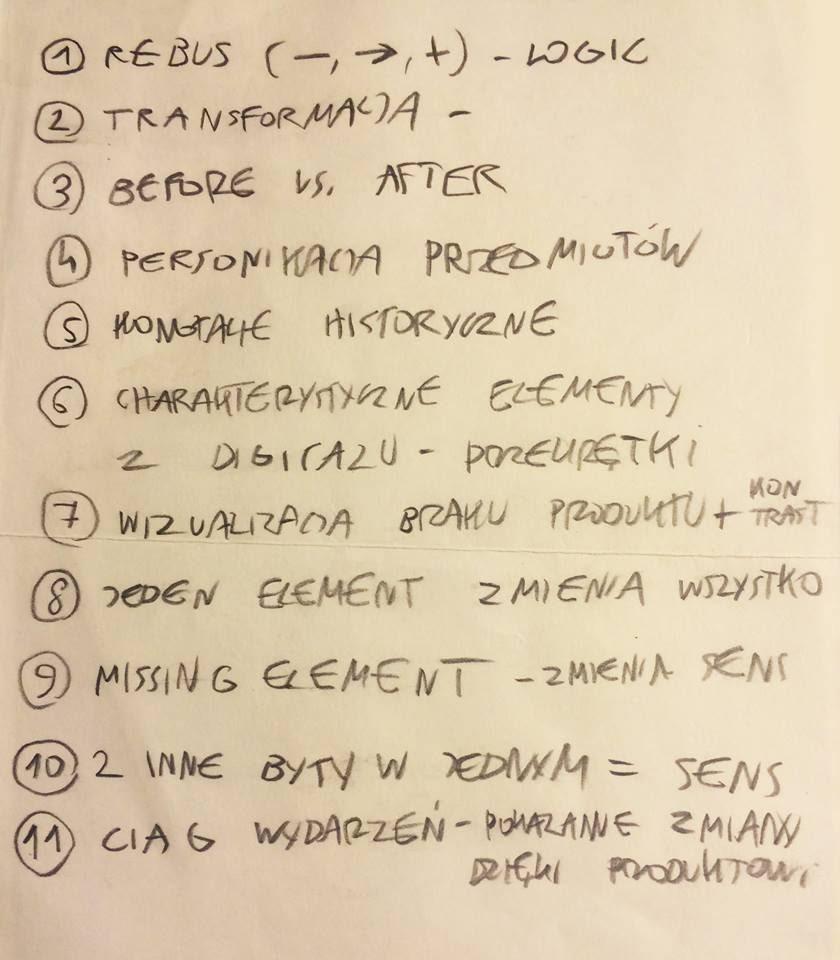 ① REBUS (—, →, +) – LOGIC
② TRANSFORMACJA –
③ BEFORE VS. AFTER
④ PERSONIKACJA PRZEDMIOTÓW
⑤ KONOTACJE HISTORYCZNE
⑥ CHARAKTERYSTYCZNE ELEMENTY
Z DIGITALU –
⑦ WIZUALIZACJA BRAKU PRODUKTU + KON
TRAST
⑧ JEDEN ELEMENT ZMIENIA WSZYSTKO
⑨ MISSING ELEMENT – ZMIENIA SENS
⑩ 2 INNE BYTY W JEDNYM = SENS
⑪ CIAG WYDARZEŃ – POKAZANIE ZMIANY
DZIĘKI PRODUKTOWI